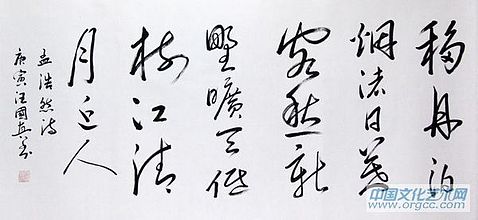 移舟泊
烟渚日暮
客愁新
野曠天低
树江清
月近人
孟浩然诗
庚寅汪國真书
中国文化艺术网
HTTP://www.orgcc.com